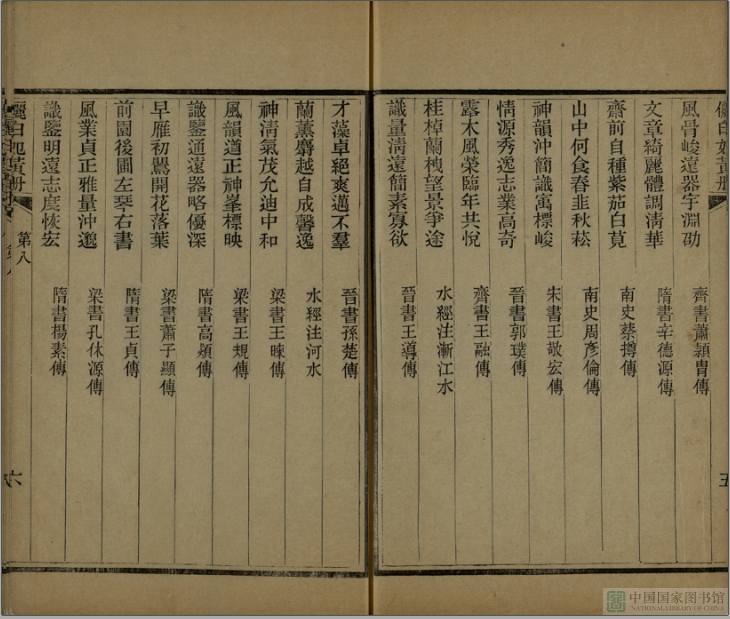 儷白妃黃册
風骨峻遠器宇淵劭 齊書蕭穎冑傳
文章綺麗體調淸華 隋書辛德源傳
齋前自種紫茄白莧 南史蔡撙傳
山中何食春韭秋菘 南史周彥倫傳
神韻沖簡識寓標峻 宋書王敬宏傳
情源秀逸志業高奇 晉書郭璞傳
露木風榮臨年共悅 齊書王融傳
桂棹蘭栧望景爭途 水經注漸江水
識量淸遠簡素寡欲 晉書王導傳
五
才藻卓絕爽邁不羣 晉書孫楚傳
蘭薰麝越自成馨逸 水經注河水
神淸氣茂允迪中和 梁書王暕傳
風韻遒正神峯標映 梁書王規傳
識鑒通遠器略優深 隋書高熲傳
早雁初鶯開花落葉 梁書蕭子顯傳
前園後圃左琴右書 隋書王貞傳
風業貞正雅量沖邈 梁書孔休源傳
識鑒明遠志度恢宏 隋書楊素傳
儷白妃黃册 第八
六
中国国家图书馆
NATIONAL LIBRARY OF CHINA